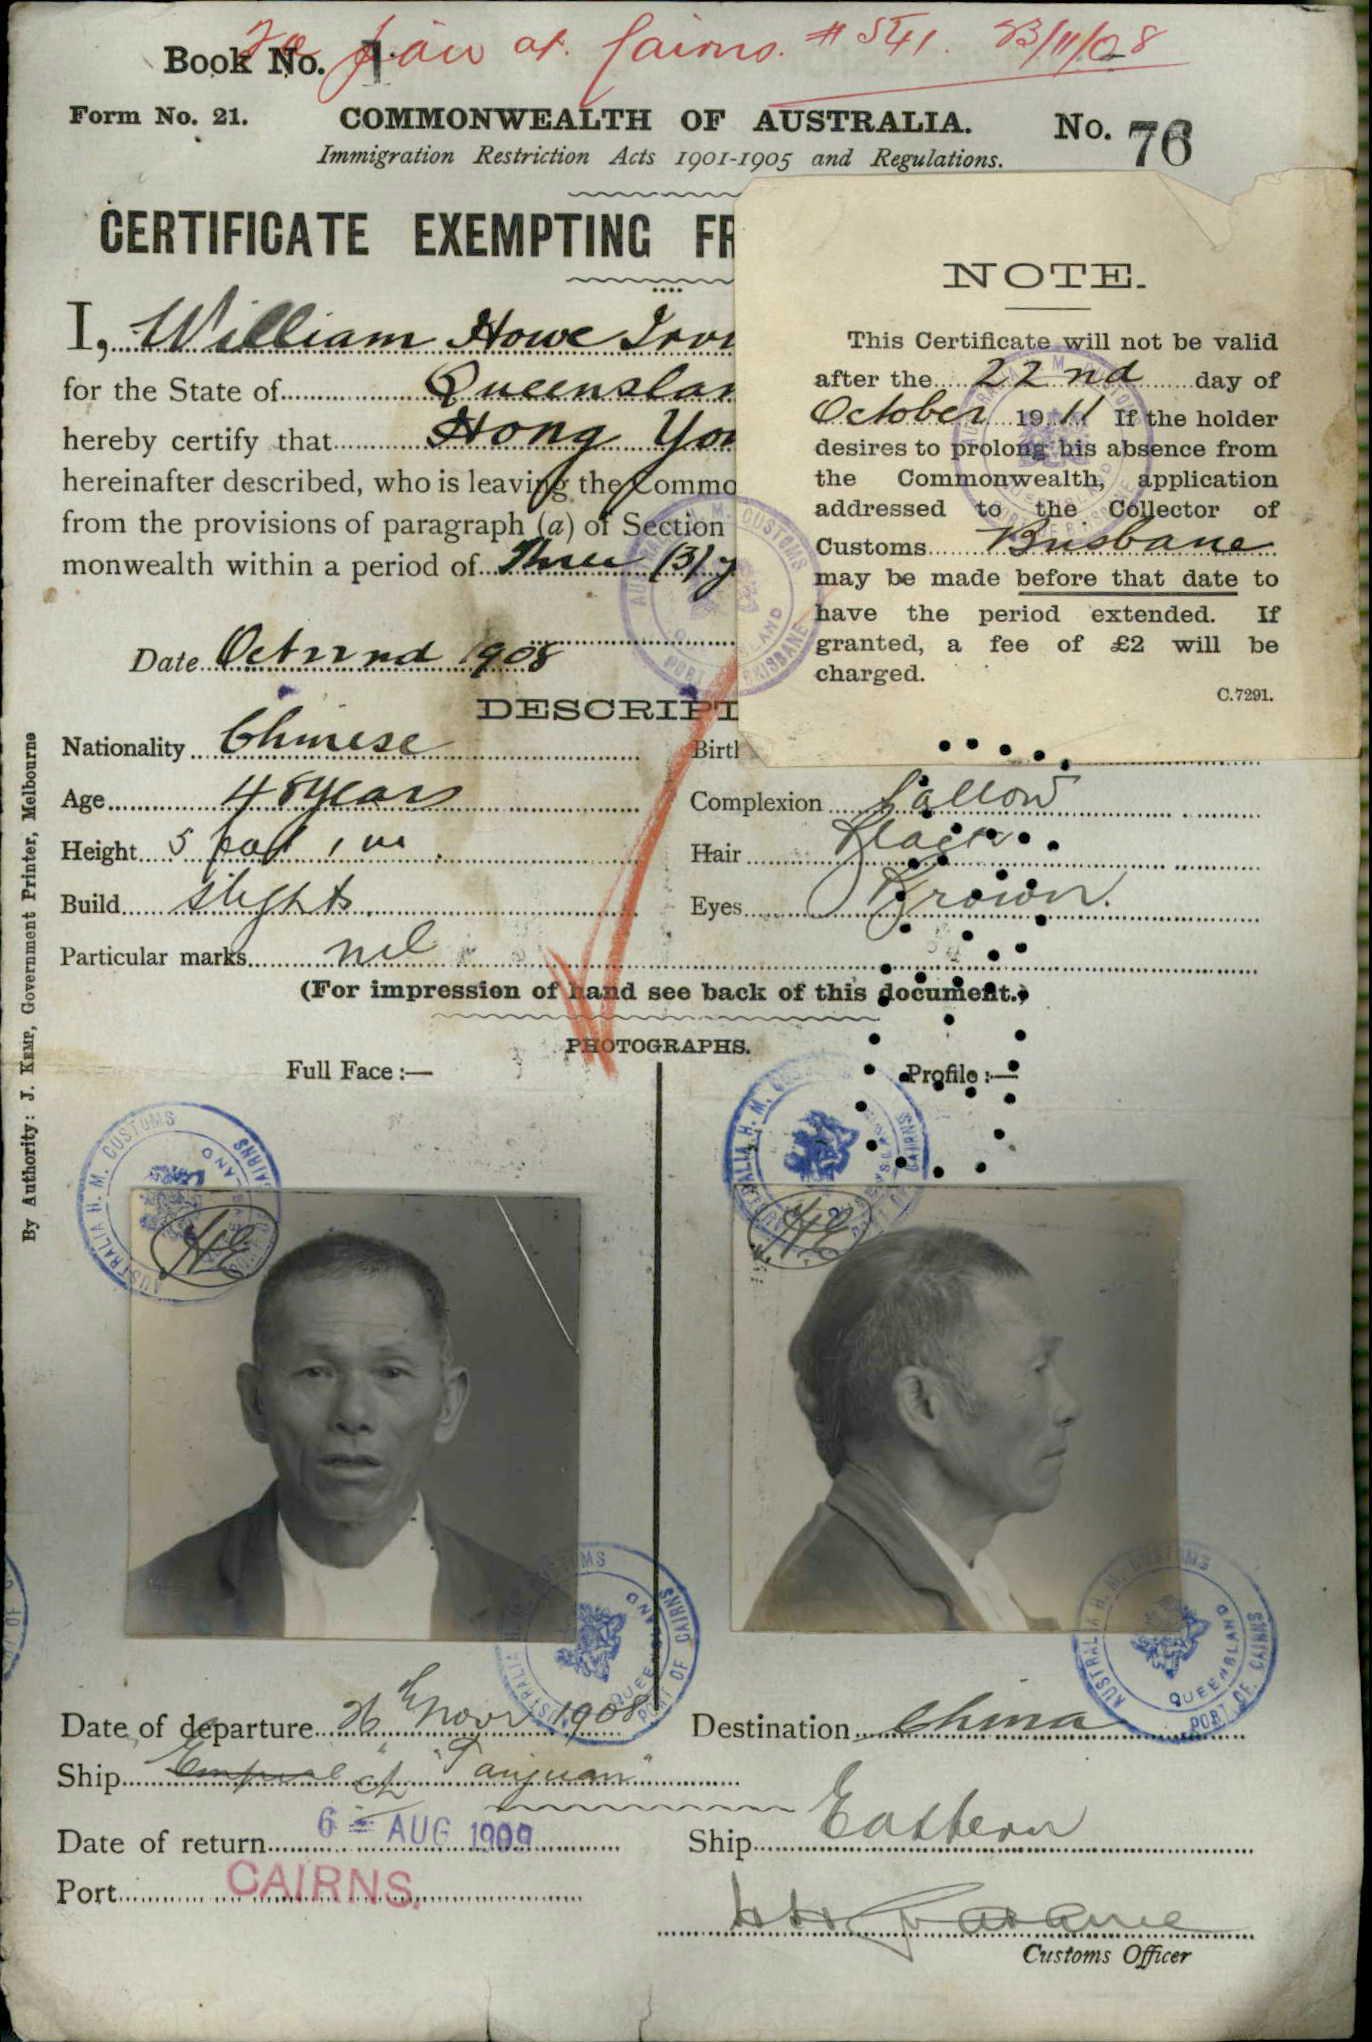 To law at Cairns. #541. 23/11/08
Book No. 1
Form No. 21. COMMONWEALTH OF AUSTRALIA. No. 76
Immigration Restriction Acts 1901-1905 and Regulations.
CERTIFICATE EXEMPTING FR
I, William Howe Irvi
for the State of Queenslan
hereby certify that Hong Yo
hereinafter described, who is leaving the Commo
from the provisions of paragraph (a) of Section
monwealth within a period of Three (3) y
Date Oct 22nd 1908
NOTE.
This Certificate will not be valid
after the 22nd day of
October 1911 If the holder
desires to prolong his absence from
the Commonwealth, application
addressed to the Collector of
Customs Brisbane
may be made before that date to
have the period extended. If
granted, a fee of £2 will be
charged.
C.7291.
DESCRIPTI
Nationality Chinese Birth
Age 48 years Complexion Sallow
Height 5 foot 1 in. Hair Black
Build slight Eyes Brown.
Particular marks nil
(For impression of hand see back of this document.)
PHOTOGRAPHS.
Full Face :— Profile :—
AUSTRALIA H. M. CUSTOMS QUEENSLAND PORT OF CAIRNS
AUSTRALIA H. M. CUSTOMS QUEENSLAND PORT OF CAIRNS
AUSTRALIA H. M. CUSTOMS QUEENSLAND PORT OF CAIRNS
AUSTRALIA H. M. CUSTOMS QUEENSLAND PORT OF CAIRNS
By Authority: J. KEMP, Government Printer, Melbourne
Date of departure 26th Novr 1908 Destination China
Ship Empire "Taiyuan"
Date of return 6 - AUG 1909 Ship Eastern
Port CAIRNS.
Customs Officer